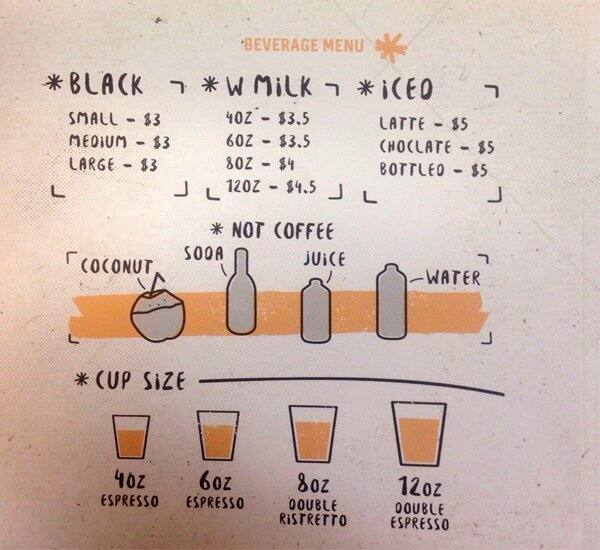 BEVERAGE MENU
* BLACK
SMALL - $3
MEDIUM - $3
LARGE - $3
* W MILK
4OZ - $3.5
6OZ - $3.5
8OZ - $4
12OZ - $4.5
* iCED
LATTE - $5
CHOCLATE - $5
BOTTLED - $5
* NOT COFFEE
COCONUT
SODA
JUiCE
WATER
* CUP SiZE
4OZ
ESPRESSO
6OZ
ESPRESSO
8OZ
DOUBLE
RiSTRETTO
12OZ
DOUBLE
ESPRESSO